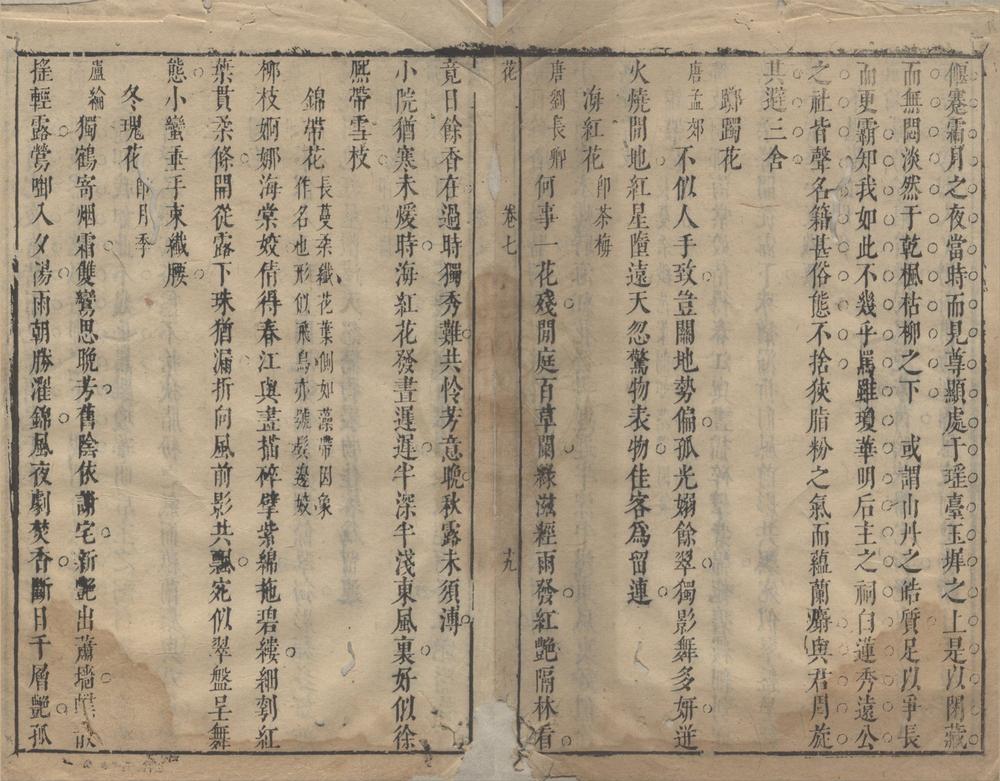 偃蹇霜月之夜當時而見尊顯處于瑤臺玉墀之上是以閉藏
而無悶淡然于乾楓枯柳之下 或謂山丹之皓質足以爭長
而更霸知我如此不幾乎罵雖瓊華明后主之祠白蓮秀遠公
之社皆聲名籍甚俗態不捨狹脂粉之氣而蘊蘭麝與君周旋
共避三舍
躑躅花
唐孟郊 不似人手致豈關地勢偏孤光嫋餘翠獨影舞多妍迸
火燒閒地紅星墮遠天忽驚物表物佳客為留連
海紅花 即茶梅
唐劉長卿 何事一花殘閒庭百草闌綠滋經雨發紅艷隔林看
花 卷七 十九
竟日餘香在過時獨秀難共憐芳意晚秋露未須溥
小院猶寒未煖時海紅花發晝遲遲半深半淺東風裏好似徐
熈帶雪枝
錦帶花 長蔓柔纖花葉側如藻帶因象
作名也形似飛鳥亦號髩邊嬌
柳枝婀娜海棠姣倩得春江與畫描碎擘紫綿拖碧縷細剳紅
葉貫柔條開從露下珠猶漏折向風前影共飄宛似翠盤呈舞
態小蠻垂手束纖腰
冬瑰花 即月季
盧綸 獨鶴寄烟霜雙鸞思晚芳舊陰依謝宅新艷出蕭墻蝶散
搖輕露鶯啣入夕陽雨朝勝濯錦風夜劇焚香斷日千層艷孤